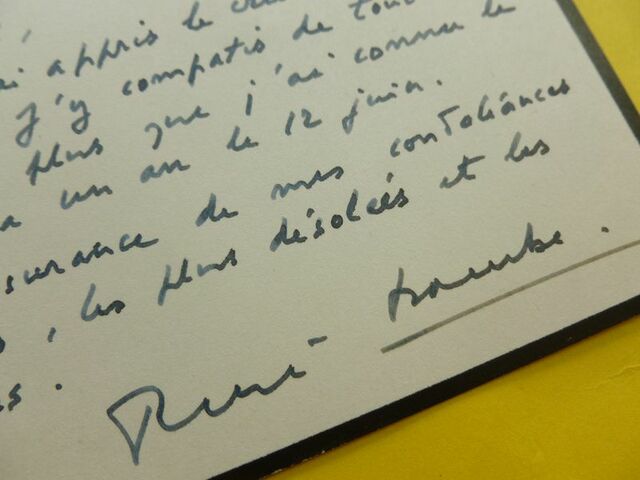 ai appris le
j'y compatis de tout
plus que j'ai connu le
a un an le 12 juin.
surance de mes condoléances
, les plus désolées et les
s.
René